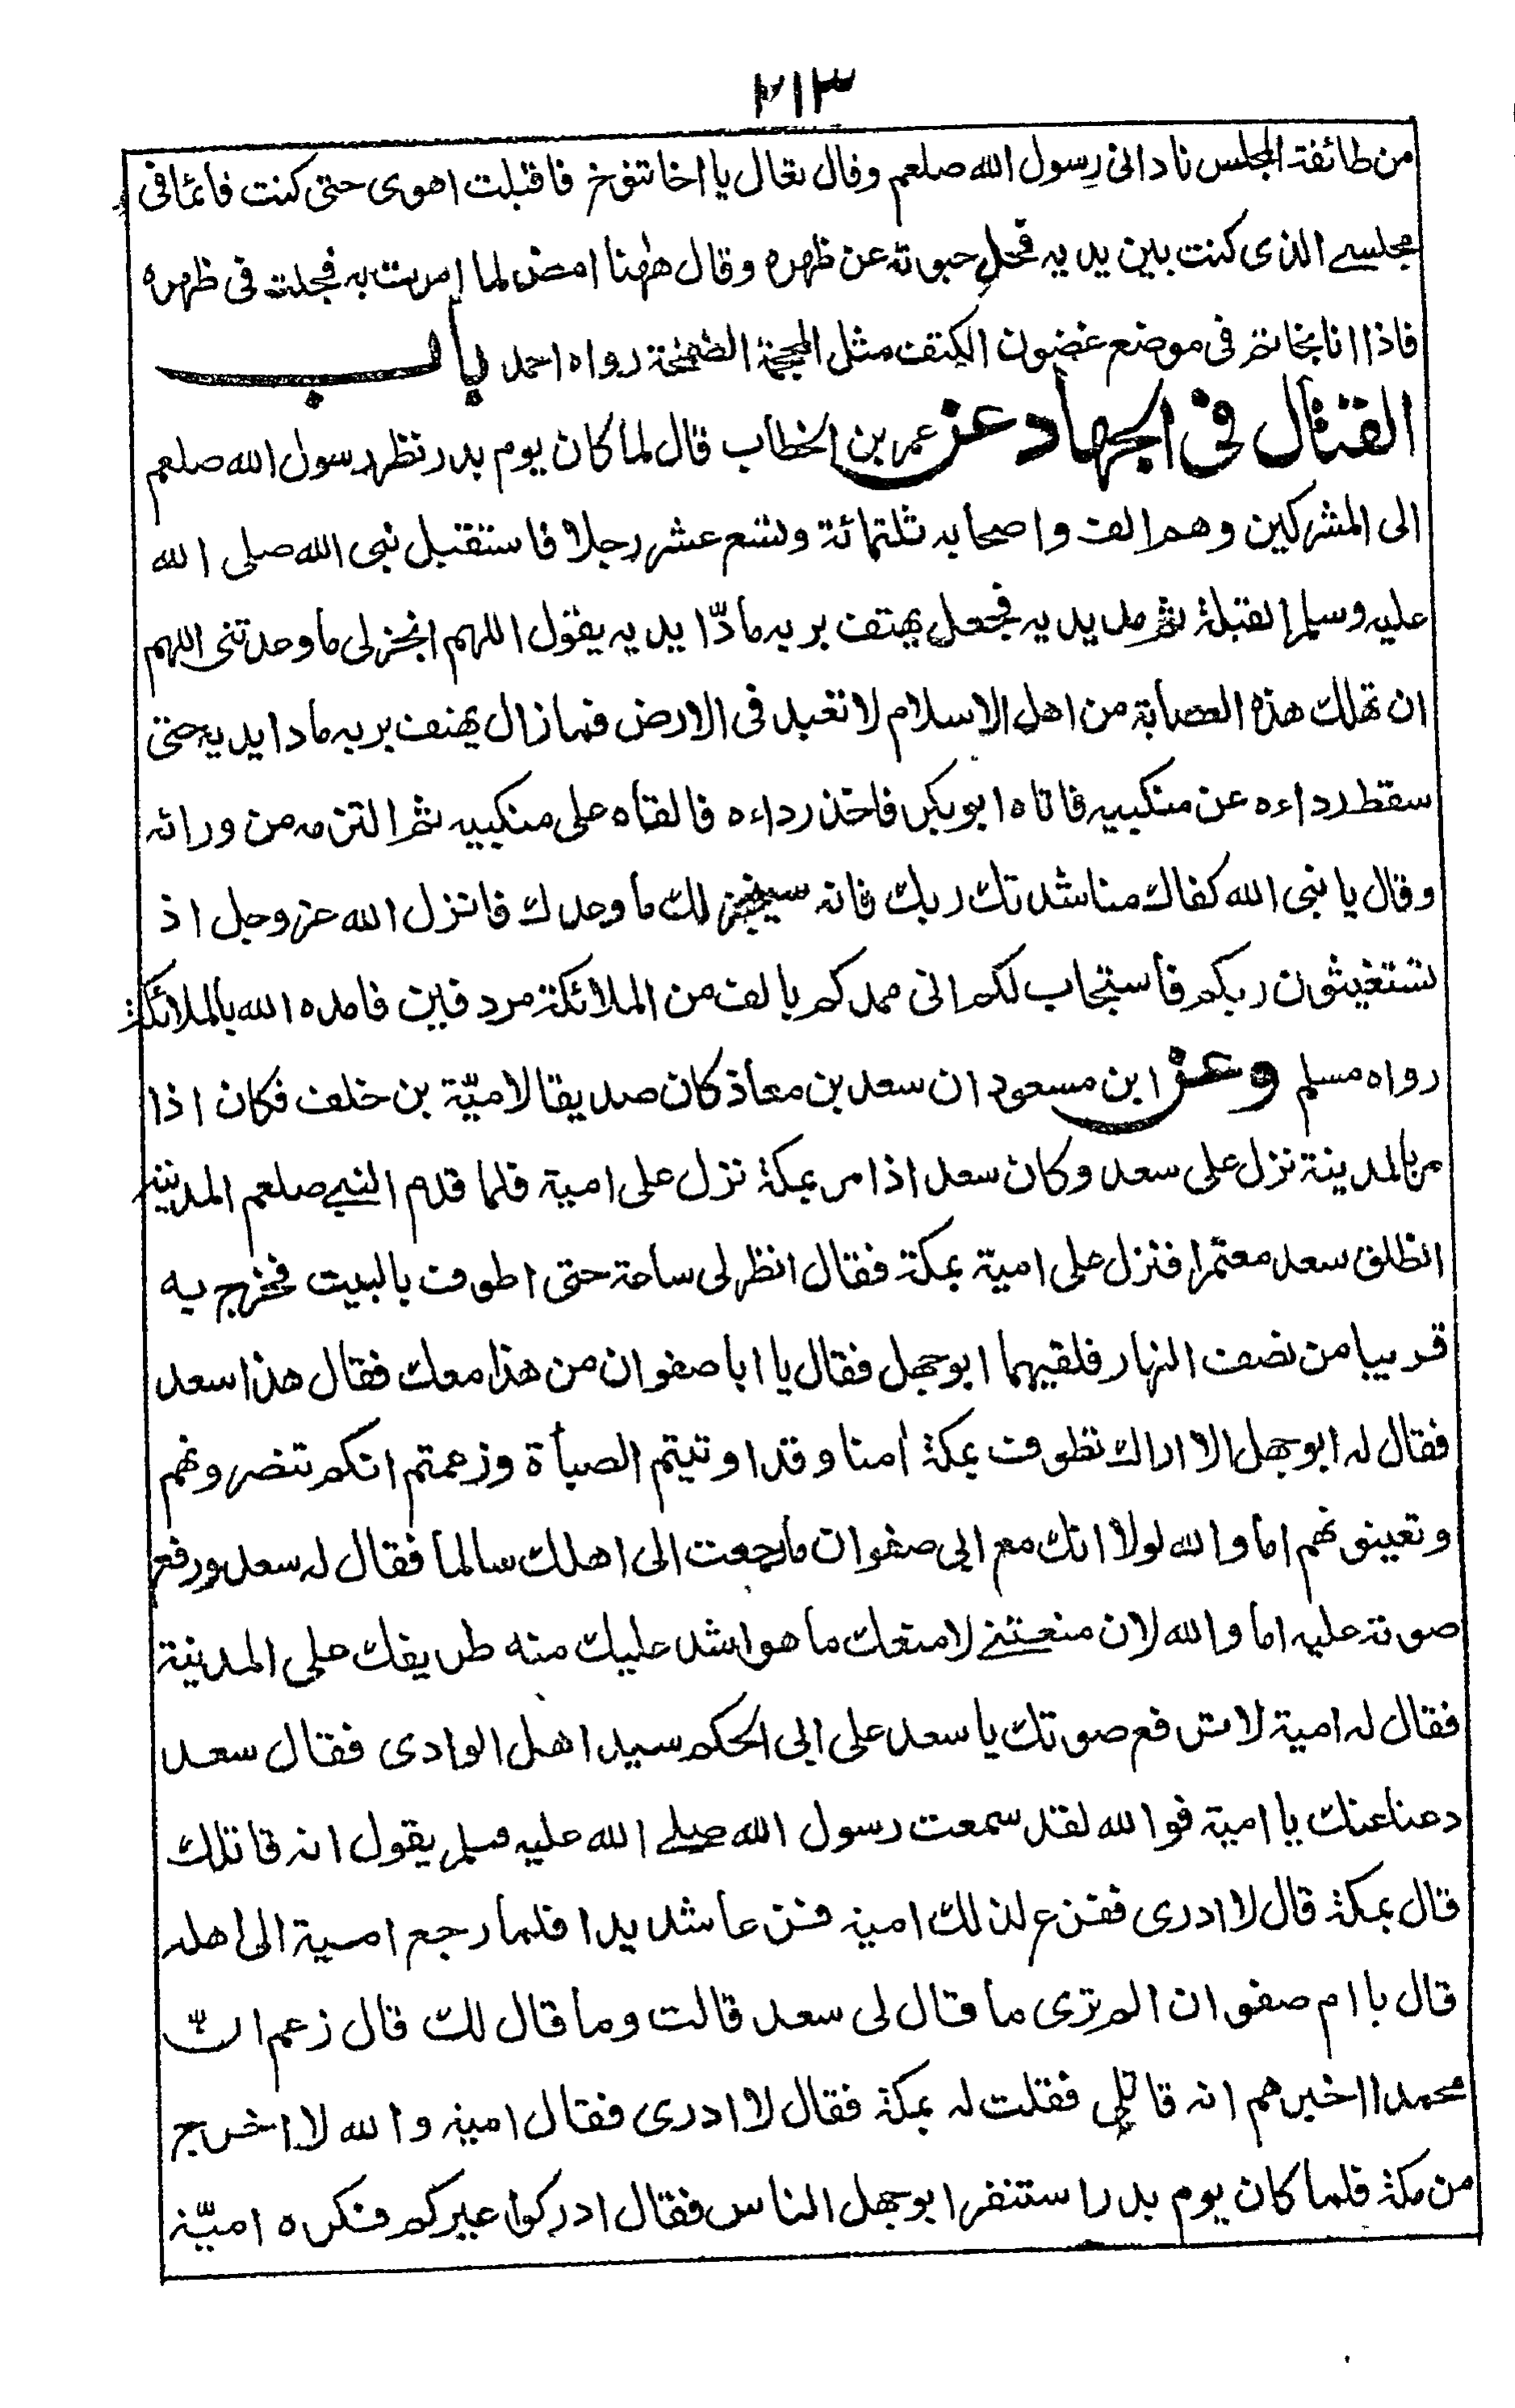 ٢١٣
من طائفة المجلس ناداني رسول الله صلعم وقال تعال يا اخا تنوخ فاقبلت اهوى حتى كنت قائما في
مجلسي الذى كنت بين يديه فحل حبوته عن ظهره وقال ههنا امض لما امرت به فجلت في ظهره
فاذا انا بخاتم في موضع غضون الكتف مثل المحجمة الضخمة رواه احمد باب
القتال في الجهاد عن عمر بن الخطاب قال لما كان يوم بدر نظر رسول الله صلعم
الى المشركين وهم الف واصحابه ثلثمائة وتسع عشر رجلا فاستقبل نبي الله صلى الله
عليه وسلم القبلة ثم مد يديه فجعل يهتف بربه مادّا يديه يقول اللهم انجز لى ما وعدتني اللهم
ان تهلك هذه العصابة من اهل الاسلام لا تعبد في الارض فما زال يهتف بربه مادا يديه حتى
سقط رداءه عن منكبيه فاتاه ابو بكر فاخذ رداءه فالقاه على منكبيه ثم التزمه من ورائه
وقال يا نبي الله كفاك مناشدتك ربك فانه سينجز لك ما وعدك فانزل الله عز وجل اذ
تستغيثون ربكم فاستجاب لكم اني ممدكم بالف من الملائكة مردفين فامده الله بالملائكة
رواه مسلم وعن ابن مسعود ان سعد بن معاذ كان صديقا لاميّة بن خلف فكان اذا
مر بالمدينة نزل على سعد وكان سعد اذا مر بمكة نزل على امية فلما قدم النبي صلعم المدينة
انطلق سعد معتمرا فنزل على امية بمكة فقال انظر لى ساعة حتى اطوف بالبيت فخرج به
قريبا من نصف النهار فلقيهما ابو جهل فقال يا ابا صفوان من هذا معك فقال هذا سعد
فقال له ابو جهل الا اراك تطوف بمكة امنا وقد اوتيتم الصبأة وزعمتم انكم تنصرونهم
وتعينونهم اما والله لولا انك مع ابى صفوان ما رجعت الى اهلك سالما فقال له سعد ورفع
صوته عليه اما والله لان منعتني لامنعك ما هو اشد عليك منه طريقك على المدينة
فقال له امية لا ترفع صوتك يا سعد على ابى الحكم سيد اهل الوادى فقال سعد
دعنا عنك يا امية فوالله لقد سمعت رسول الله صلى الله عليه وسلم يقول انه قاتلك
قال بمكة قال لا ادرى ففزع لذلك امية فزعا شديدا فلما رجع امية الى اهله
قال يا ام صفوان الم ترى ما قال لى سعد قالت وما قال لك قال زعم انّ
محمدا اخبرهم انه قاتلي فقلت له بمكة فقال لا ادرى فقال امية والله لا اخرج
من مكة فلما كان يوم بدر استنفر ابو جهل الناس فقال ادركوا عيركم فكره اميّة